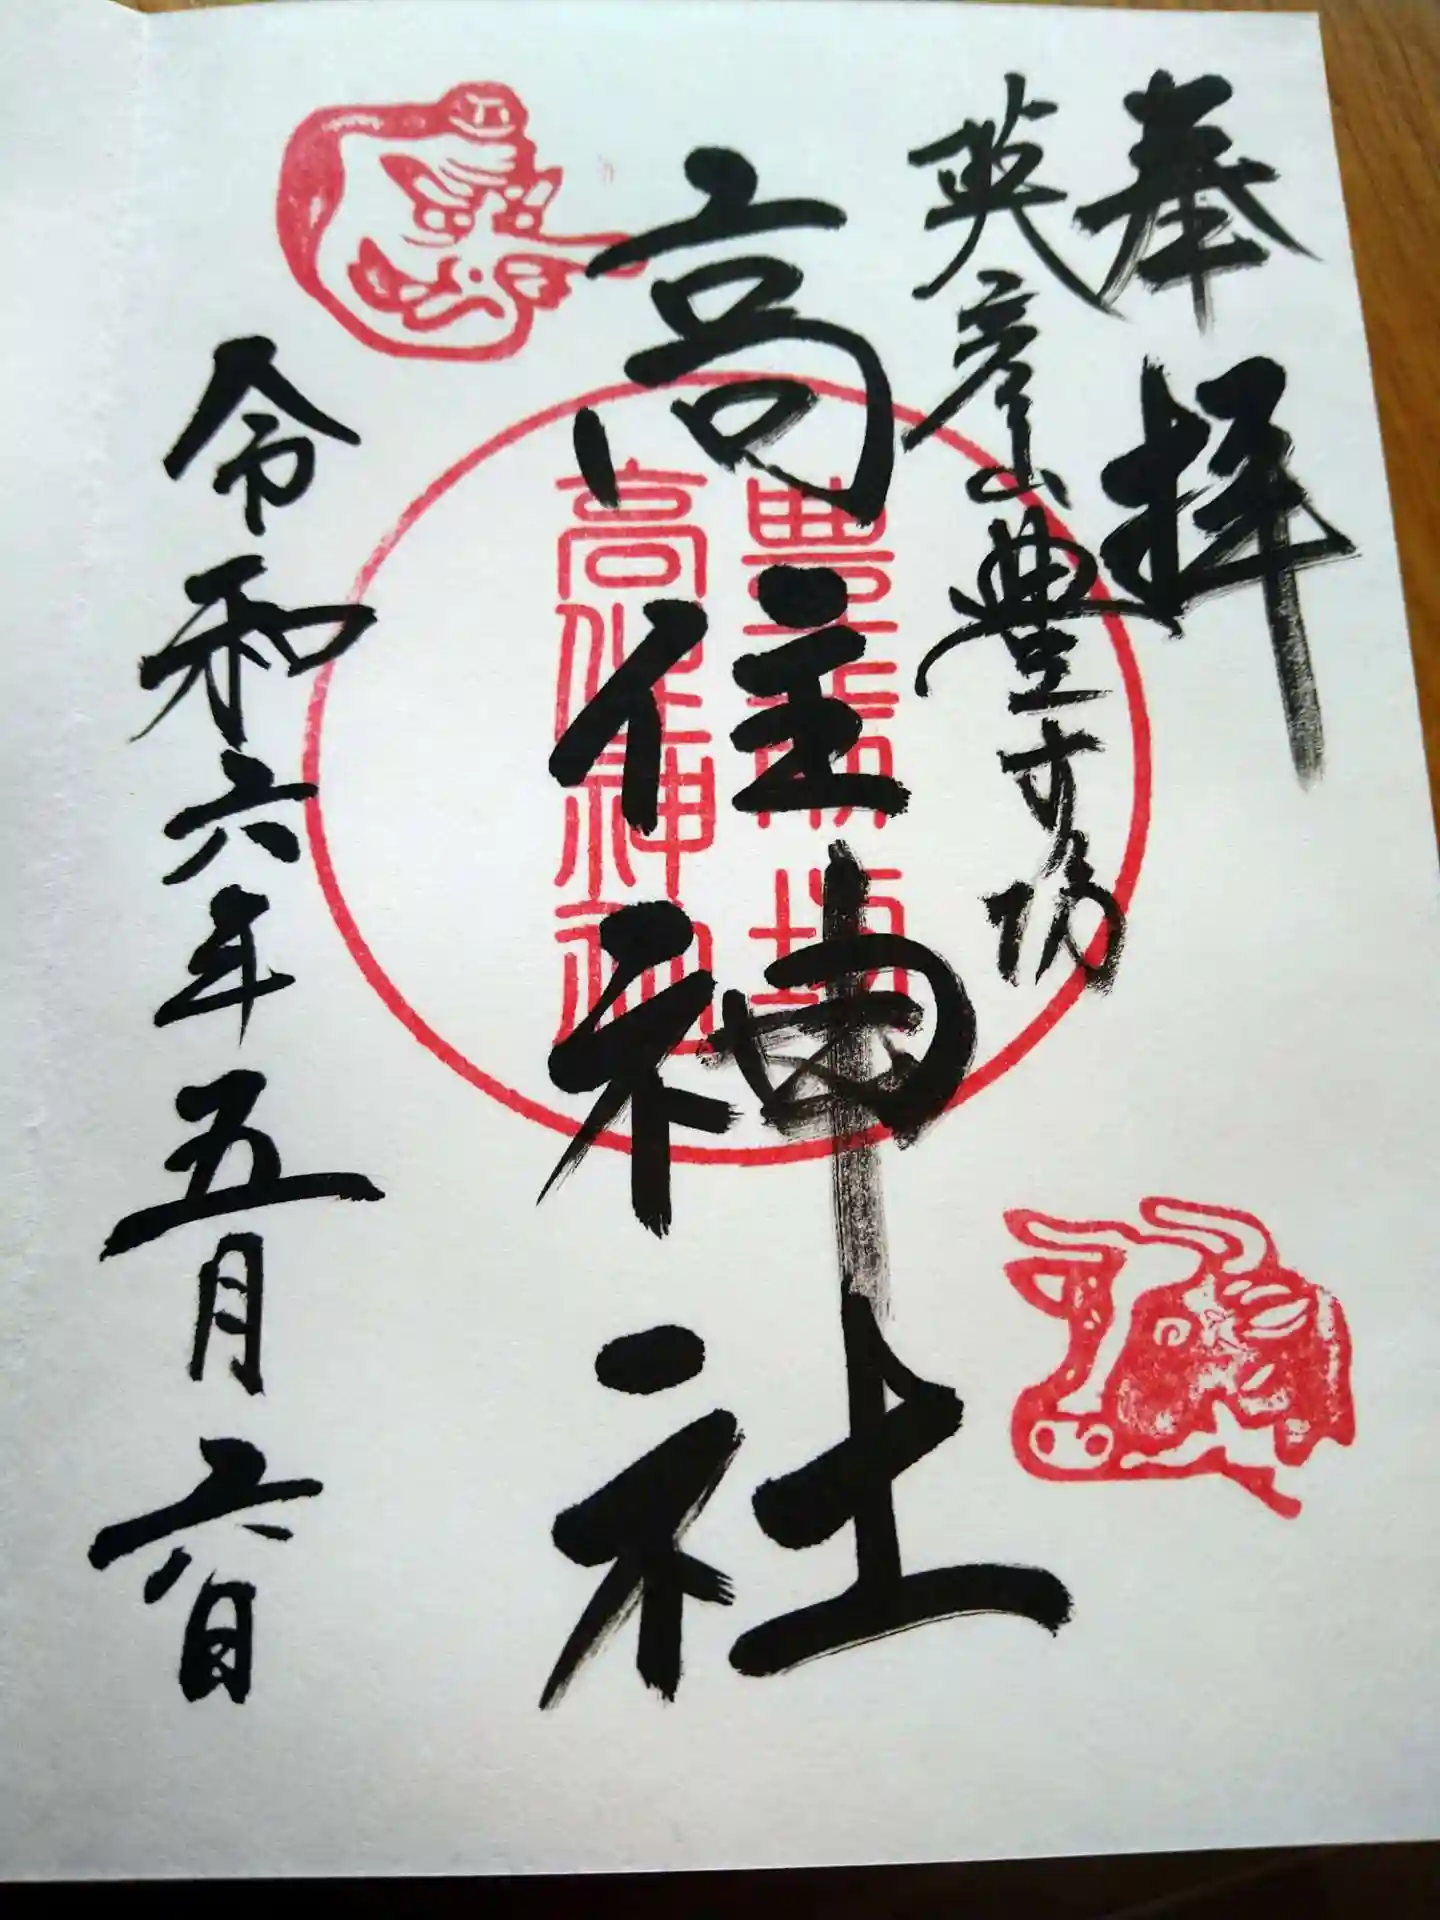 奉拝
英彦山豊前坊
高住神社
豊前坊
高住神社
令和六年五月六日